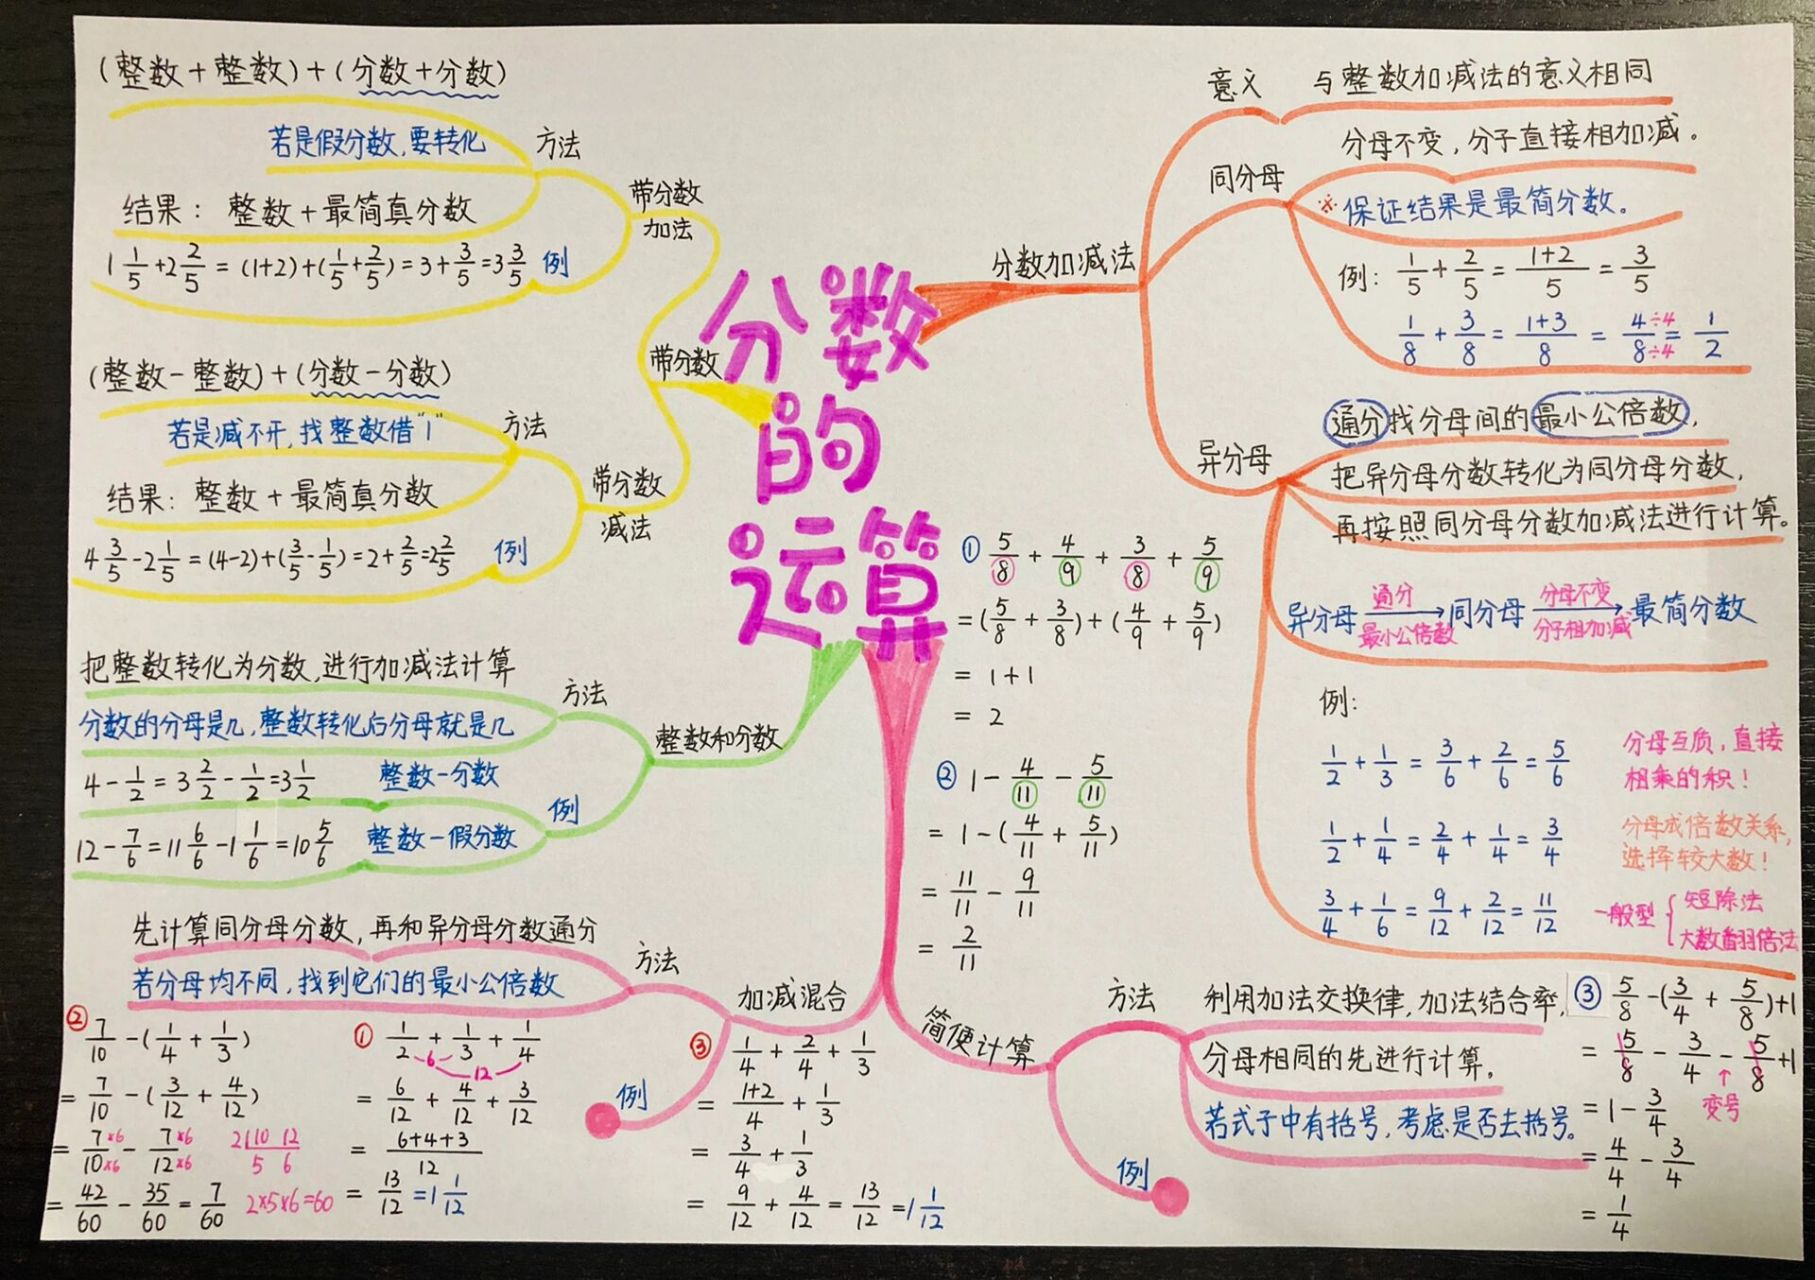 分数
的
运算
分数加减法
意义
与整数加减法的意义相同
同分母
分母不变，分子直接相加减。
※保证结果是最简分数。
例: 1/5 + 2/5 = (1+2)/5 = 3/5
1/8 + 3/8 = (1+3)/8 = 4÷4/8÷4 = 1/2
异分母
通分找分母间的最小公倍数,
把异分母分数转化为同分母分数,
再按照同分母分数加减法进行计算。
异分母 通分 最小公倍数 同分母 分母不变 分子相加减 最简分数
例:
1/2 + 1/3 = 3/6 + 2/6 = 5/6
分母互质,直接
相乘的积！
1/2 + 1/4 = 2/4 + 1/4 = 3/4
分母成倍数关系,
选择较大数！
3/4 + 1/6 = 9/12 + 2/12 = 11/12
一般型 { 短除法
大数翻倍法
带分数
带分数
加法
方法
(整数+整数)+(分数+分数)
若是假分数,要转化
结果: 整数+最简真分数
1 1/5 + 2 2/5 = (1+2)+(1/5+2/5) = 3+3/5 = 3 3/5 例
带分数
减法
方法
(整数-整数)+(分数-分数)
若是减不开,找整数借"1"
结果: 整数+最简真分数
4 3/5 - 2 1/5 = (4-2)+(3/5-1/5) = 2+2/5 = 2 2/5 例
整数和分数
方法
把整数转化为分数,进行加减法计算
分数的分母是几,整数转化后分母就是几
例
4 - 1/2 = 3 2/2 - 1/2 = 3 1/2 整数-分数
12 - 7/6 = 11 6/6 - 1 1/6 = 10 5/6 整数-假分数
加减混合
方法
先计算同分母分数,再和异分母分数通分
若分母均不同,找到它们的最小公倍数
例
① 1/2 + 1/3 + 1/4
6
12
= 6/12 + 4/12 + 3/12
= (6+4+3)/12
= 13/12 = 1 1/12
② 7/10 - (1/4 + 1/3)
= 7/10 - (3/12 + 4/12)
= 7×6/10×6 - 7×6/12×6
2|10 12
5 6
= 42/60 - 35/60 = 7/60
2×5×6=60
③ 1/4 + 2/4 + 1/3
= (1+2)/4 + 1/3
= 3/4 + 1/3
= 9/12 + 4/12 = 13/12 = 1 1/12
简便计算
方法
利用加法交换律,加法结合率,
分母相同的先进行计算。
若式子中有括号,考虑是否去括号。
例
① 5/8 + 4/9 + 3/8 + 5/9
= (5/8 + 3/8) + (4/9 + 5/9)
= 1+1
= 2
② 1 - 4/11 - 5/11
= 1 - (4/11 + 5/11)
= 11/11 - 9/11
= 2/11
③ 5/8 - (3/4 + 5/8) + 1
= 5/8 - 3/4 - 5/8 + 1
变号
= 1 - 3/4
= 4/4 - 3/4
= 1/4